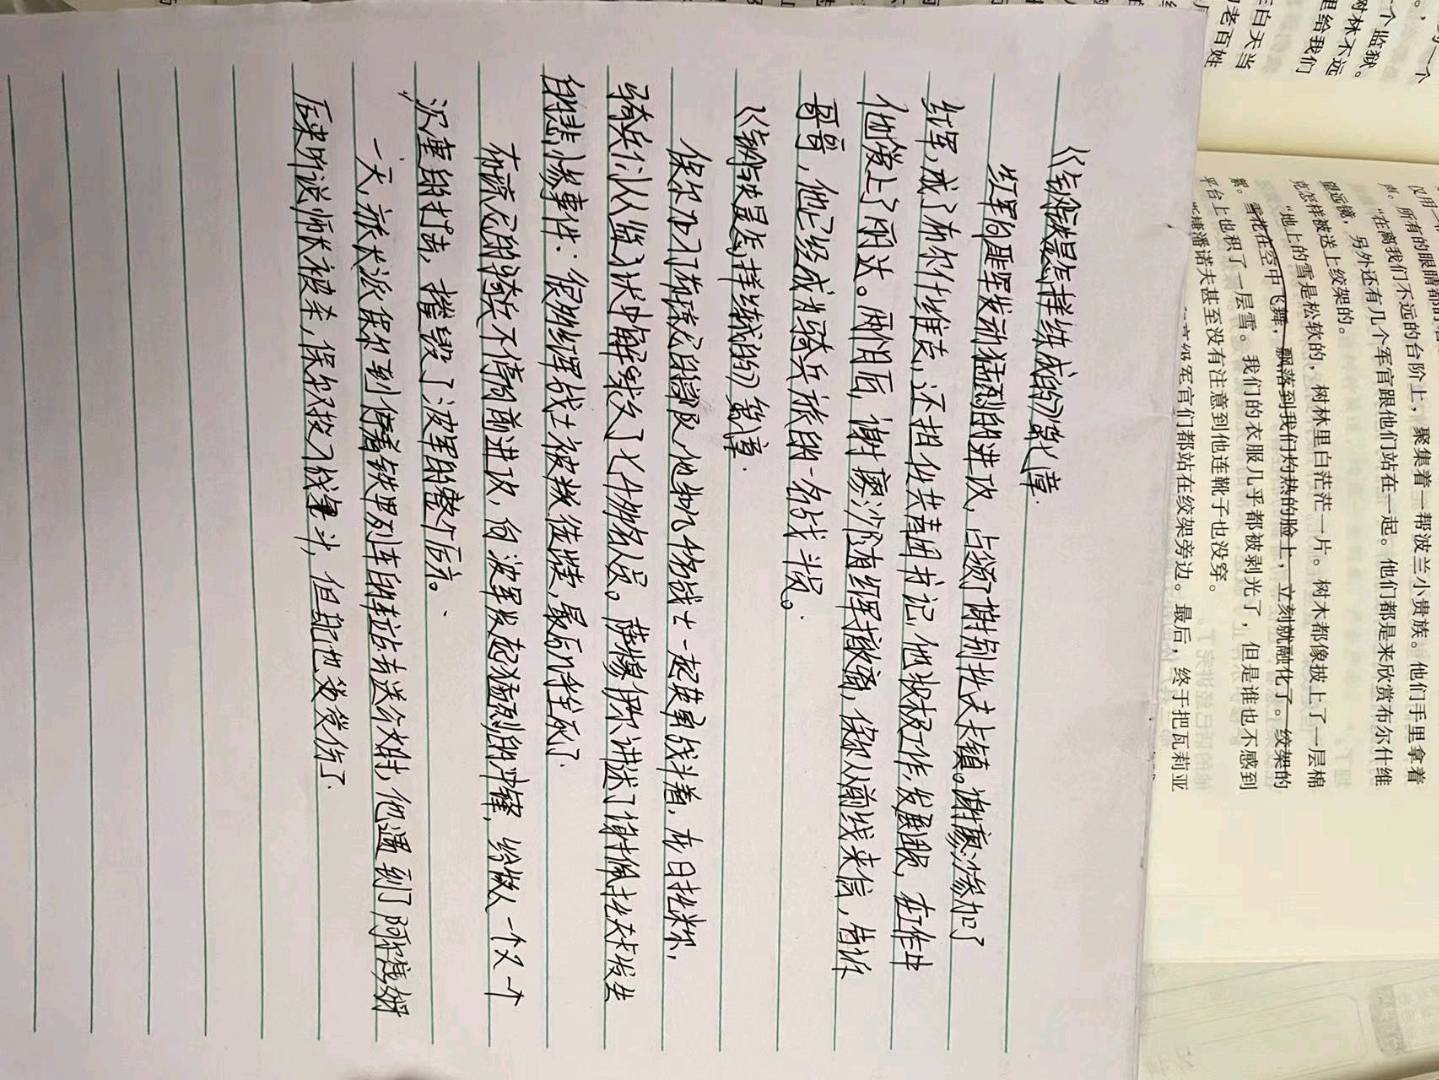 《钢铁是怎样练成的》第七章.
红军向匪军发动猛烈的进攻，占领了谢别托夫卡镇。谢廖沙参加了
红军，成了布尔什维克，还担任共青团书记，他积极工作，发展团员，在工作中
他爱上了丽达。两个月后，谢廖沙随着红军撤离，保尔从前线来信，告诉
哥哥，他已经成为骑兵旅的一名战斗员。
《钢铁是怎样练成的》第八章.
保尔加入了布琼尼的部队，他和几个战士一起英勇战斗着，在日托米尔，
骑兵们从监狱中解救了七个人员。萨缪伊尔讲述了谢别托夫卡发生
的悲惨事件：很多红军战士被敌人绞死了.
布琼尼的骑兵不停向前进攻，向波军发起猛烈的冲锋，给敌人一个又一个
沉重的打击，摧毁了波军的整个后方。
一天，旅长派保尔到停着铁甲列车的车站去送公文时，他遇到了阿尔青姆
后来听说师长被杀，保尔投入战斗，但是他受伤了.
仅用一
声。所有的眼睛都
“在离我们不远的台阶上，聚集着一帮波兰小贵族。他们手里拿着
望远镜，另外还有几个军官跟他们站在一起。他们都是来欣赏布尔什维
克怎样被送上绞架的。
“地上的雪是松软的，树林里白茫茫一片。树木都像披上了一层棉
絮。雪花在空中飞舞，飘落到我们灼热的脸上，立刻就融化了。绞架的
平台上也积了一层雪。我们的衣服几乎都被剥光了，但是谁也不感到
潘诺夫甚至没有注意到他连靴子也没穿。
军官们都站在绞架旁边。最后，终于把瓦莉亚
一个
个监狱。
树林不远
里给我们
白天当
老百姓